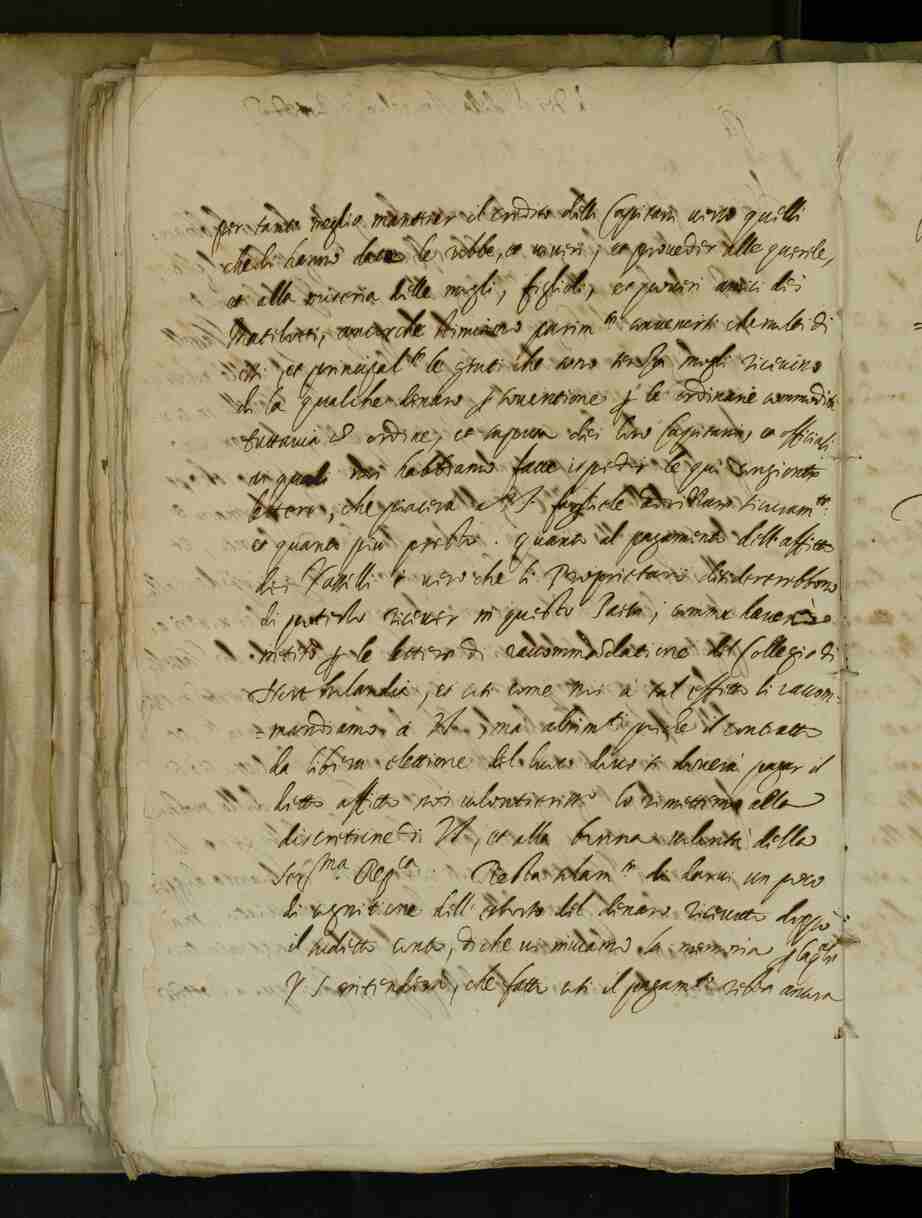 per tanto meglio mantener il credito delli Capitani verso quelli
che li hanno dato le robbe, et viveri, et proveder alle querele,
et alla miseria delle mogli, figlioli, et poveri amici dei
Marilotti, ancorche stimiamo parim.te convenirsi che molti di
essi, et principal.te le genti che sono senza mogli ricevino
di la qualche denaro p soventione p le ordinarie commodità
tuttavia con ordine, et saputa dei loro Capitanij, et officiali
ai quali noi habbiamo fatto ispedir le qui congionte
lettere, che piacerà a V. S. fargliele adrizzare sicuram.te
et quanto più presto. quanto al pagamento dell'affitto
dei Vasselli è vero che li Proprietarij desiderarebbono
di poterlo ricever in questo Paese, comme haverà
inteso p le lettere di raccommandatione del Collegio di
Nort Holandia, et così come noi a tal effetto li racom=
=mandiamo a V.S., ma altrim.ti perche il contratto
da libera elettione del luoco dove si doverà pagar il
detto affitto noi volontierissi lo rimettemo alla
discretione di V.S., et alla buona volontà della
Ser.ma Rep.ca. Resta solam.te da darvi un poco
di cognitione dell'esborso del denaro ricevuto doppo
il sudetto conto, di che vi inviamo la memoria p la
V S intenderà, che fatto così il pagam.to resta ancora